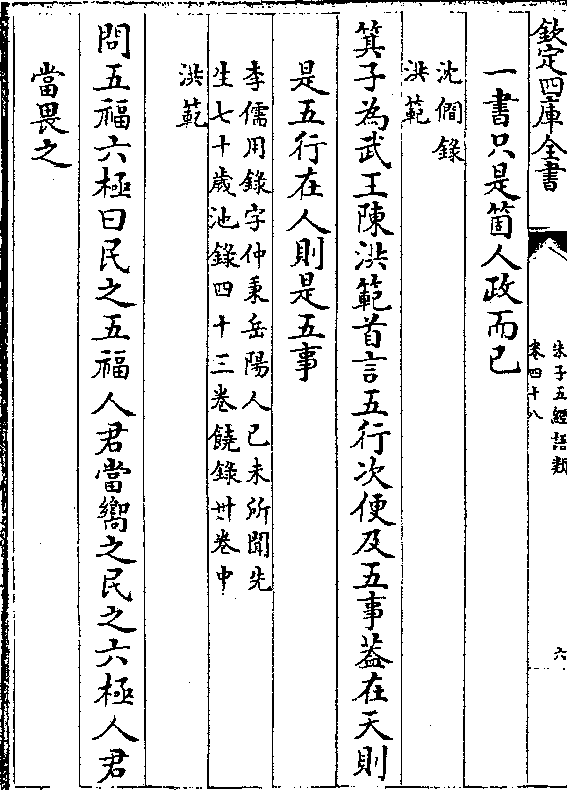 欽定四庫全書
朱子五經語類
卷四十八
六
一書只是箇人政而已
沈僴錄
洪範
箕子為武王陳洪範首言五行次便及五事葢在天則
是五行在人則是五事
李儒用錄字仲秉岳陽人已未所聞先
生七十歲池錄四十三卷饒錄卅卷中
洪範
問五福六極曰民之五福人君當嚮之民之六極人君
當畏之